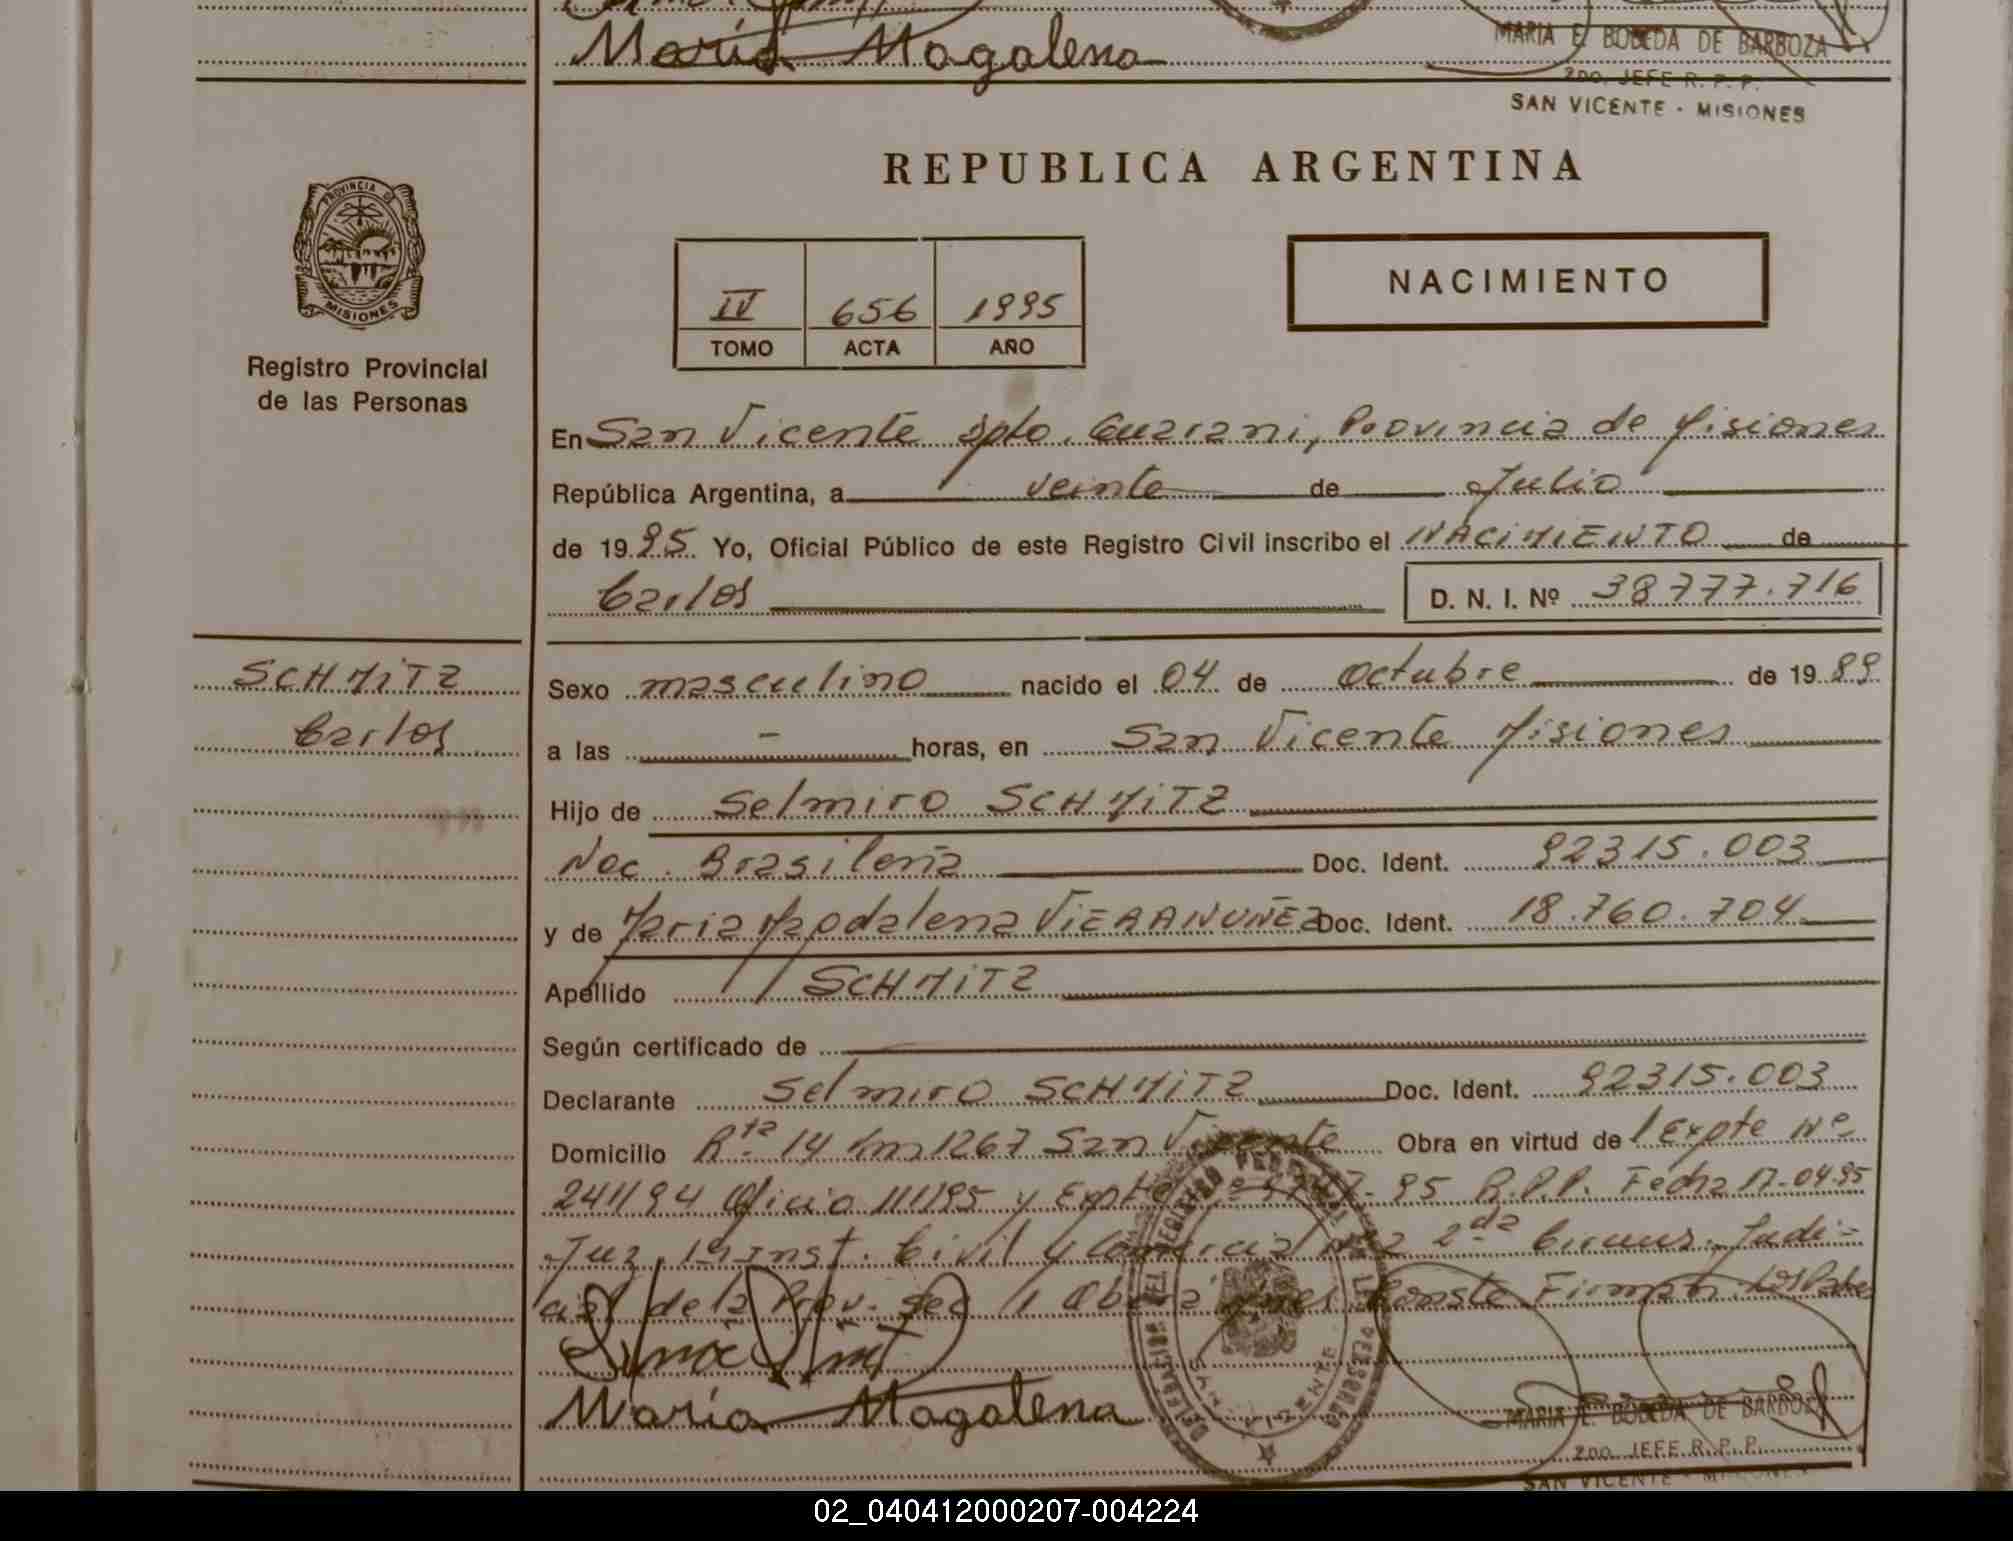 María Magalena
MARIA E. BOBEDA DE BARBOZA
2DO. JEFE R. P. P.
SAN VICENTE - MISIONES
PROVINCIA DE
MISIONES
Registro Provincial
de las Personas
REPUBLICA ARGENTINA
IV 656 1995
TOMO ACTA AÑO
NACIMIENTO
En San Vicente Dpto. Guarani, Provincia de Misiones
República Argentina, a veinte de Julio
de 19 95 Yo, Oficial Público de este Registro Civil inscribo el NACIMIENTO de
Carlos D. N. I. Nº 38.777.716
SCHMITZ
Carlos
Sexo masculino nacido el 04 de octubre de 19 89
a las - horas, en San Vicente Misiones
Hijo de Selmiro SCHMITZ
Nac. Brasileña Doc. Ident. 92315.003
y de Maria Magdalena VIERA NUÑEZ Doc. Ident. 18.760.704
Apellido SCHMITZ
Según certificado de
Declarante Selmiro SCHMITZ Doc. Ident. 92315.003
Domicilio Rta 14 Km 1267 San Vicente Obra en virtud de Expte Nº
241/94 Oficio 111/95 y Expte 95 R.P.P. Fecha 17-04-95
Juz. 1º Inst. Civil y Comercial Nº 2 2da Circuns. Judi-
cial de la Prov. Sec 1 Oberá Mnes. Conste Firman los Padres
María Magalena
DELEGACION DEL REGISTRO
DE LAS PERSONAS
SAN VICENTE
MARIA E. BOBEDA DE BARBOZA
2DO. JEFE R. P. P.
SAN VICENTE - MISIONES
02_040412000207-004224